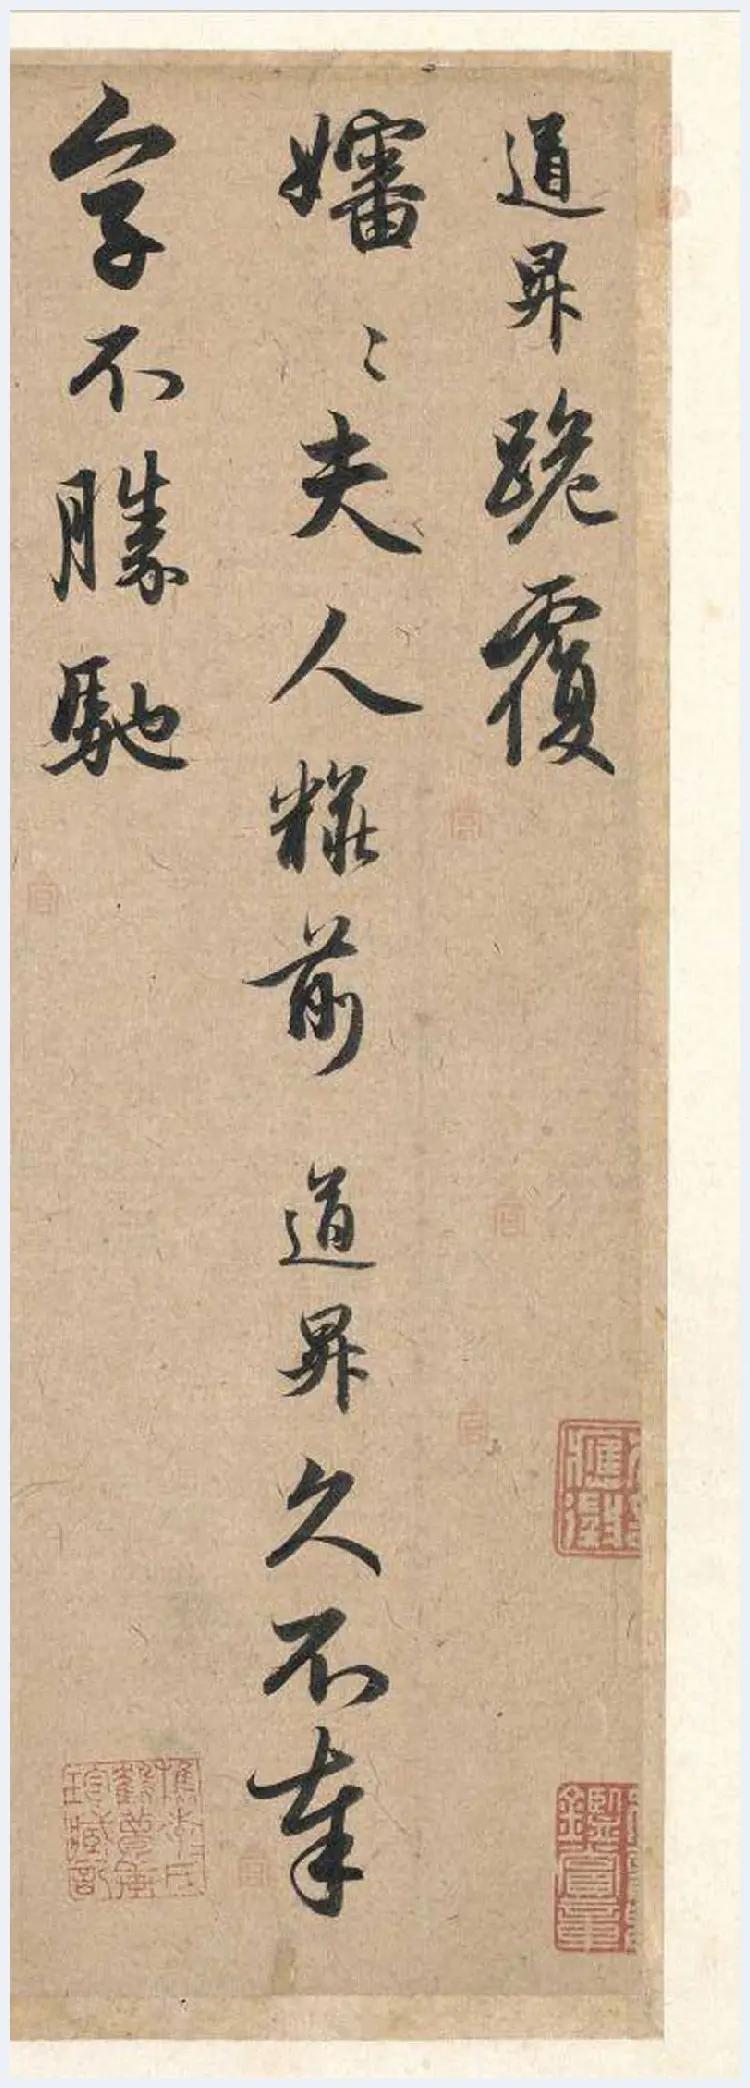 道昇跪覆
嬸〻夫人糚前 道昇久不奉
字不勝馳